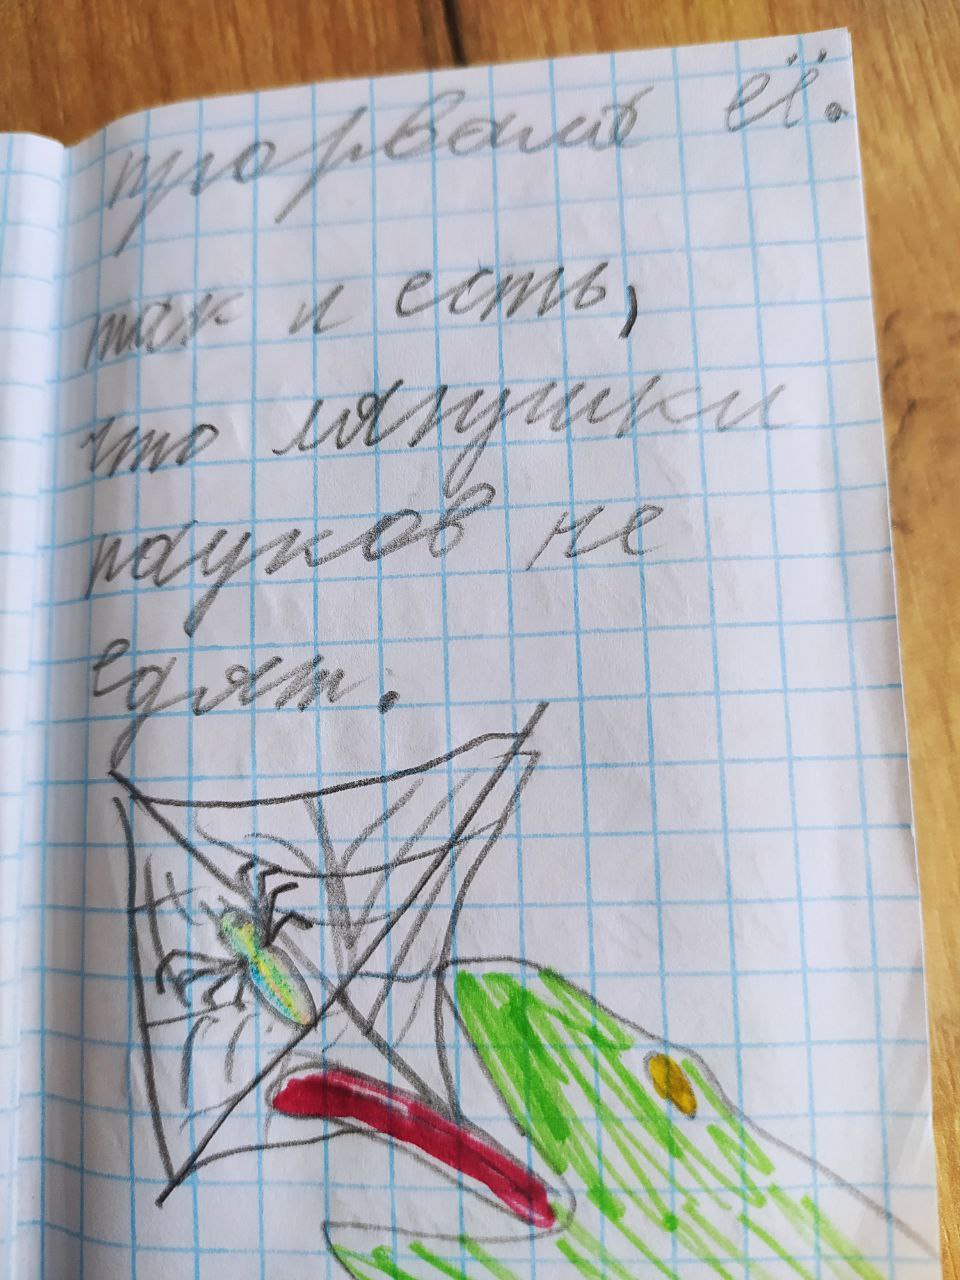 прорвали её.
так и есть,
что лягушки
пауков не
едят.